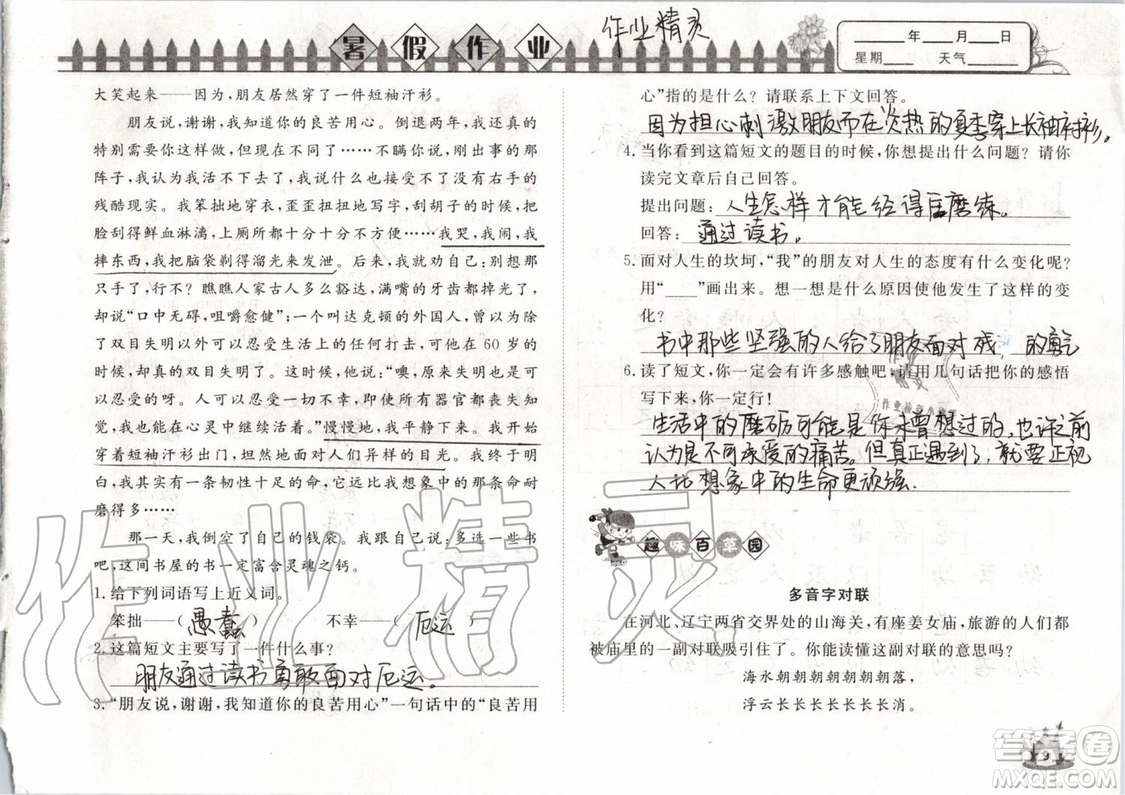 暑假作业
作业精灵
____年____月____日
星期____ 天气____
大笑起来——因为,朋友居然穿了一件短袖汗衫。
朋友说,谢谢,我知道你的良苦用心。倒退两年,我还真的
特别需要你这样做,但是现在不同了……不瞒你说,我出事的那
阵子,特别地恐惧,也特别地沮丧。我无法接受没有右手的
残酷现实。我笨拙地穿衣,歪歪扭扭地写字,刮胡子的时候,把
脸刮得鲜血淋漓,上厕所都十分十分不方便……我哭,我闹,我
摔东西,我把脑袋剃得溜光来发泄。后来,我就劝自己:别想那
只手了。我开始读书。瞧瞧人家古人多么豁达,满嘴的牙齿都掉光了,
却说“口中无碍,咀嚼愈健”;一个叫达克顿的外国人,曾认为除了
双目失明以外可以忍受生活上的任何打击,可他在60岁的
时候,却真的双目失明了。这时他说:“噢,原来失明也是可以
忍受的呀。人可以忍受一切不幸,即使所有器官都丧失知
觉,我也能在心灵中继续活着。”慢慢地,我平静下来。我开始
穿着短袖汗衫出门,坦然地面对人们异样的目光。我终于明
白,其实我有一条韧性十足的命,它远比我想象中的那条命耐
磨得多……
那一天,我倒空了自己的钱袋。我跟朋友说,多选一些书
吧,这间书屋的书一定富含灵魂之钙。
1.给下列词语写上近义词。
笨拙——(愚蠢) 不幸——(厄运)
2.这篇短文主要写了一件什么事?
朋友通过读书勇敢面对厄运。
3.“朋友说,谢谢,我知道你的良苦用心”一句话中的“良苦用
心”指的是什么?请联系上下文回答。
因为担心刺激朋友而在炎热的夏季穿上长袖衬衫。
4.当你看到这篇短文的题目的时候,你想提出什么问题?请你
读完文章后自己回答。
提出问题:人生怎样才能经得巨磨练。
回答:通过读书。
5.面对人生的坎坷,“我”的朋友对人生的态度有什么变化?
用“____”画出来。想一想是什么原因使他发生了这样的变
化?
书中那些坚强的人给了朋友面对残 的勇气
6.读了短文,你一定会有许多感触吧,请用几句话把你的感悟
写下来,你一定行!
生活中的磨砺可能是你未曾想过的,也许之前
认为是不可承受的痛苦。但真正遇到了,就要正视
人比想象中的生命更顽强.
趣味百草园
多音字对联
在河北、辽宁两省交界处的山海关,有座姜女庙,旅游的人们都
被庙里的一副对联吸引住了。你能读懂这副对联的意思吗?
海水朝朝朝朝朝朝朝落,
浮云长长长长长长长消。
9
作业精灵
答案卷
MXQE.COM